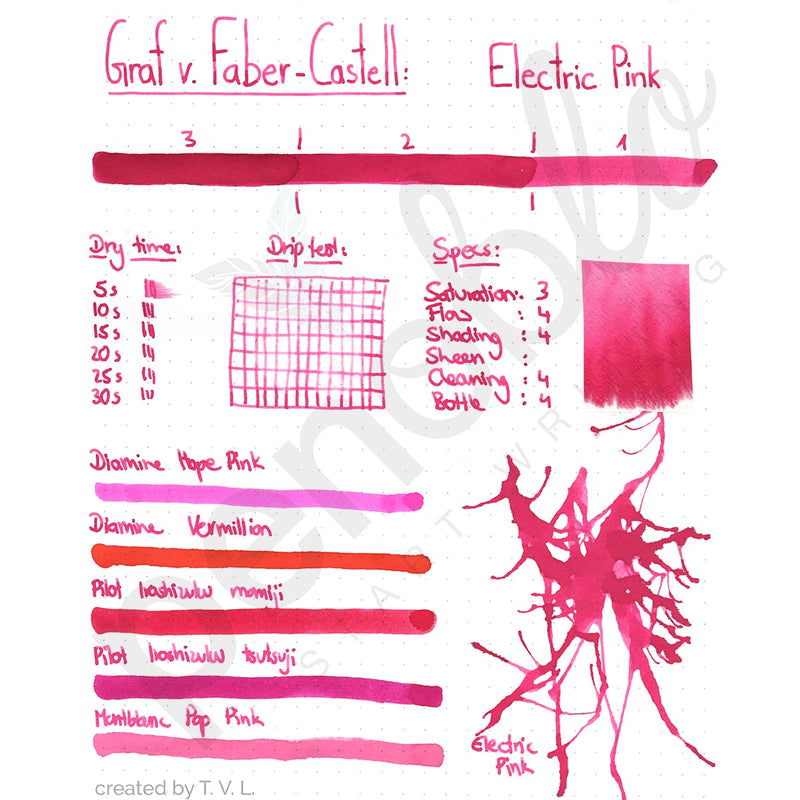 Graf v. Faber-Castell: Electric Pink
3 2 1
Dry time: Drip test: Specs:
5s
10s
15s
20s
25s
30s
Saturation: 3
Flow : 4
Shading : 4
Sheen :
Cleaning : 4
Bottle : 4
Diamine Hope Pink
Diamine Vermillion
Pilot Iroshizuku momiji
Pilot Iroshizuku tsutsuji
Montblanc Pop Pink
Electric
Pink
penoblo
START WRITING
created by T. V. L.